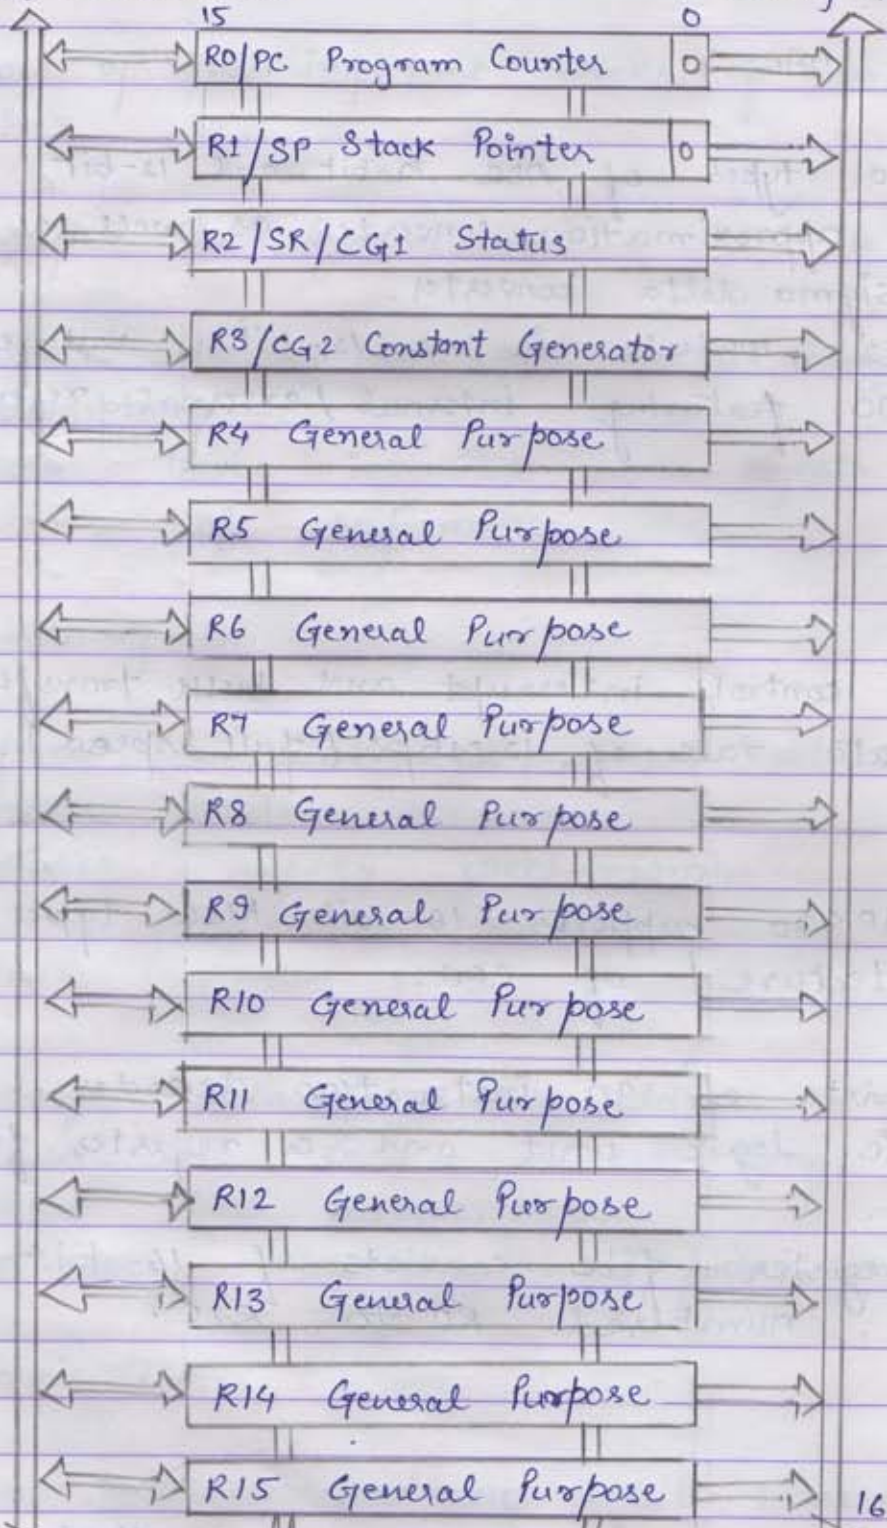 15 0
R0/PC Program Counter 0
R1/SP Stack Pointer 0
R2/SR/CG1 Status
R3/CG2 Constant Generator
R4 General Purpose
R5 General Purpose
R6 General Purpose
R7 General Purpose
R8 General Purpose
R9 General Purpose
R10 General Purpose
R11 General Purpose
R12 General Purpose
R13 General Purpose
R14 General Purpose
R15 General Purpose
16